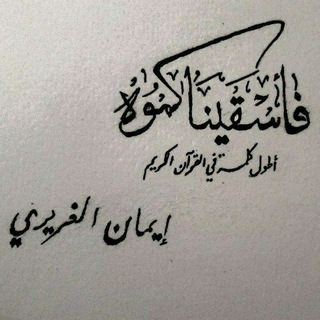 فأسقيناكموه
أطول كلمة في القرآن الكريم
إيمان الغريري